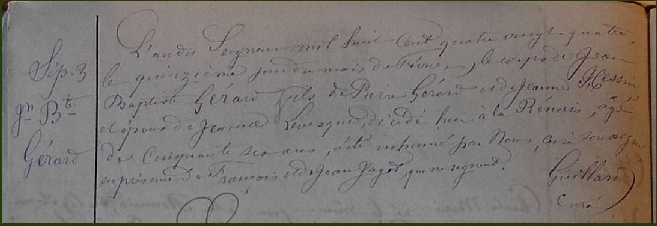 Sép. 3
Jn Bte
Gérard
L'an du Seigneur mil huit cent quatre vingt quatre,
le quinzième jour du mois de Février, le corps de Jean
Baptiste Gérard fils de Pierre Gérard et de Jeanne Hessin
et époux de Jeanne Levesque, décédé hier à la Rénais, âgé
de Cinquante six ans, a été inhumé par Nous, curé soussigné
en présence de François et de Jean Pagot qui ne signent.
Guillard
Curé